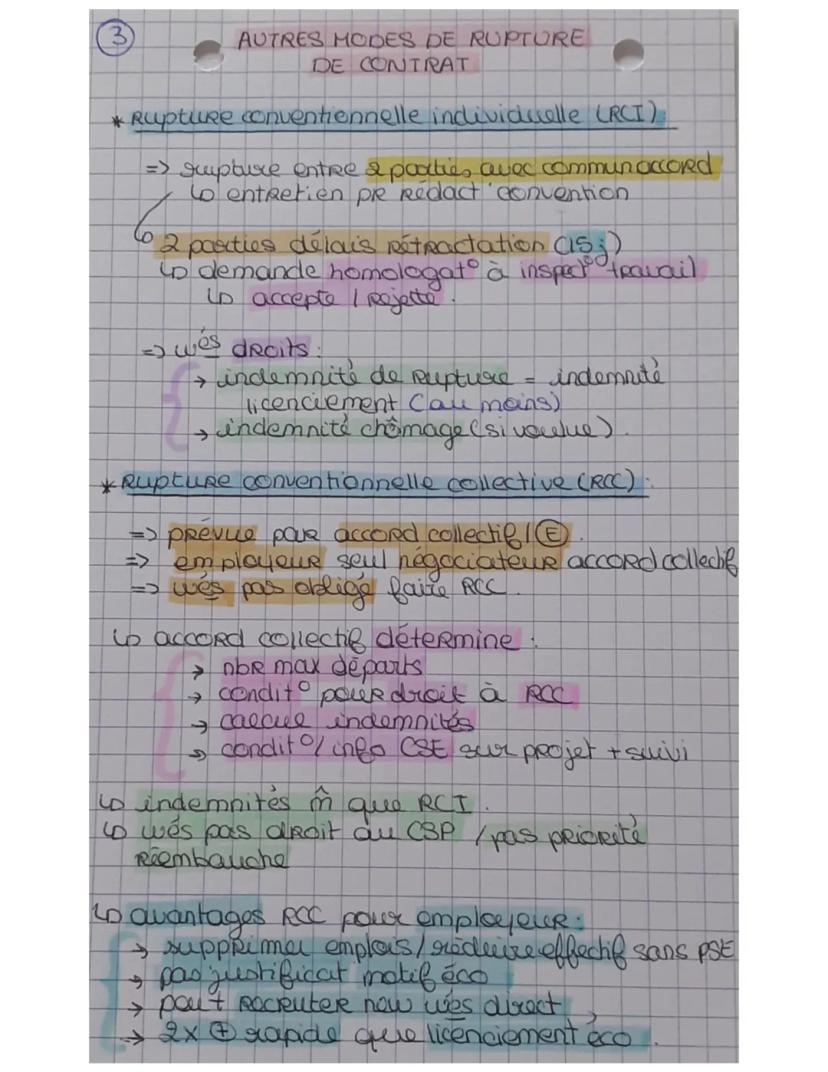 3
AUTRES MODES DE RUPTURE
DE CONTRAT
* Rupture conventionnelle individuelle (RCI)
=> rupture entre 2 parties avec commun accord
↳ entretien pr rédact° convention
↳ 2 parties délais rétractation (15j)
↳ demande homologat° à inspect° travail
↳ accepte / rejette.
=> wés droits :
→ indemnité de rupture = indemnité
licenciement (au moins)
→ indemnité chômage (si voulue).
* Rupture conventionnelle collective (RCC) :
=> prévue par accord collectif / Ⓔ.
=> employeur seul négociateur accord collectif
=> wés pas obligé faire RCC.
↳ accord collectif détermine :
→ nbr max départs
→ condit° pour droit à RCC
→ calcul indemnités
→ condit° / info CSE sur projet + suivi
↳ indemnités m̂ que RCI.
↳ wés pas droit au CSP / pas priorité
réembauche
↳ avantages RCC pour employeur :
→ supprimer emplois / réduire effectif sans PSE
→ pas justificat° motif éco
→ peut recruter nouv wés direct
→ 2x ⊕ rapide que licenciement éco.